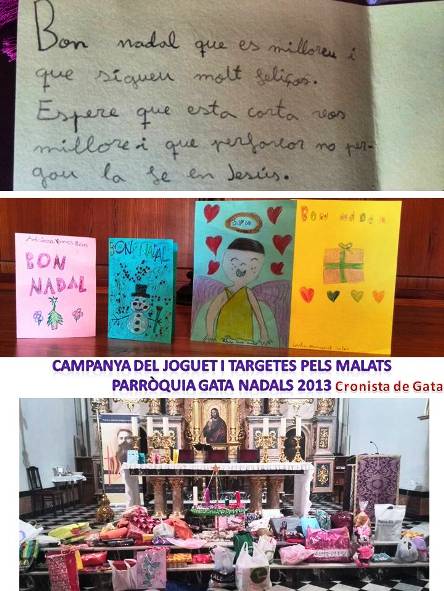 Bon nadal que es milloreu i
que sigueu molt feliços.
Espere que esta carta vos
millore i que perfavor no per-
gau la fe en Jesús.
BON
NADAL
BON NADAL
Bon nadal
CAMPANYA DEL JOGUET I TARGETES PELS MALATS
PARRÒQUIA GATA NADALS 2013 Cronista de Gata